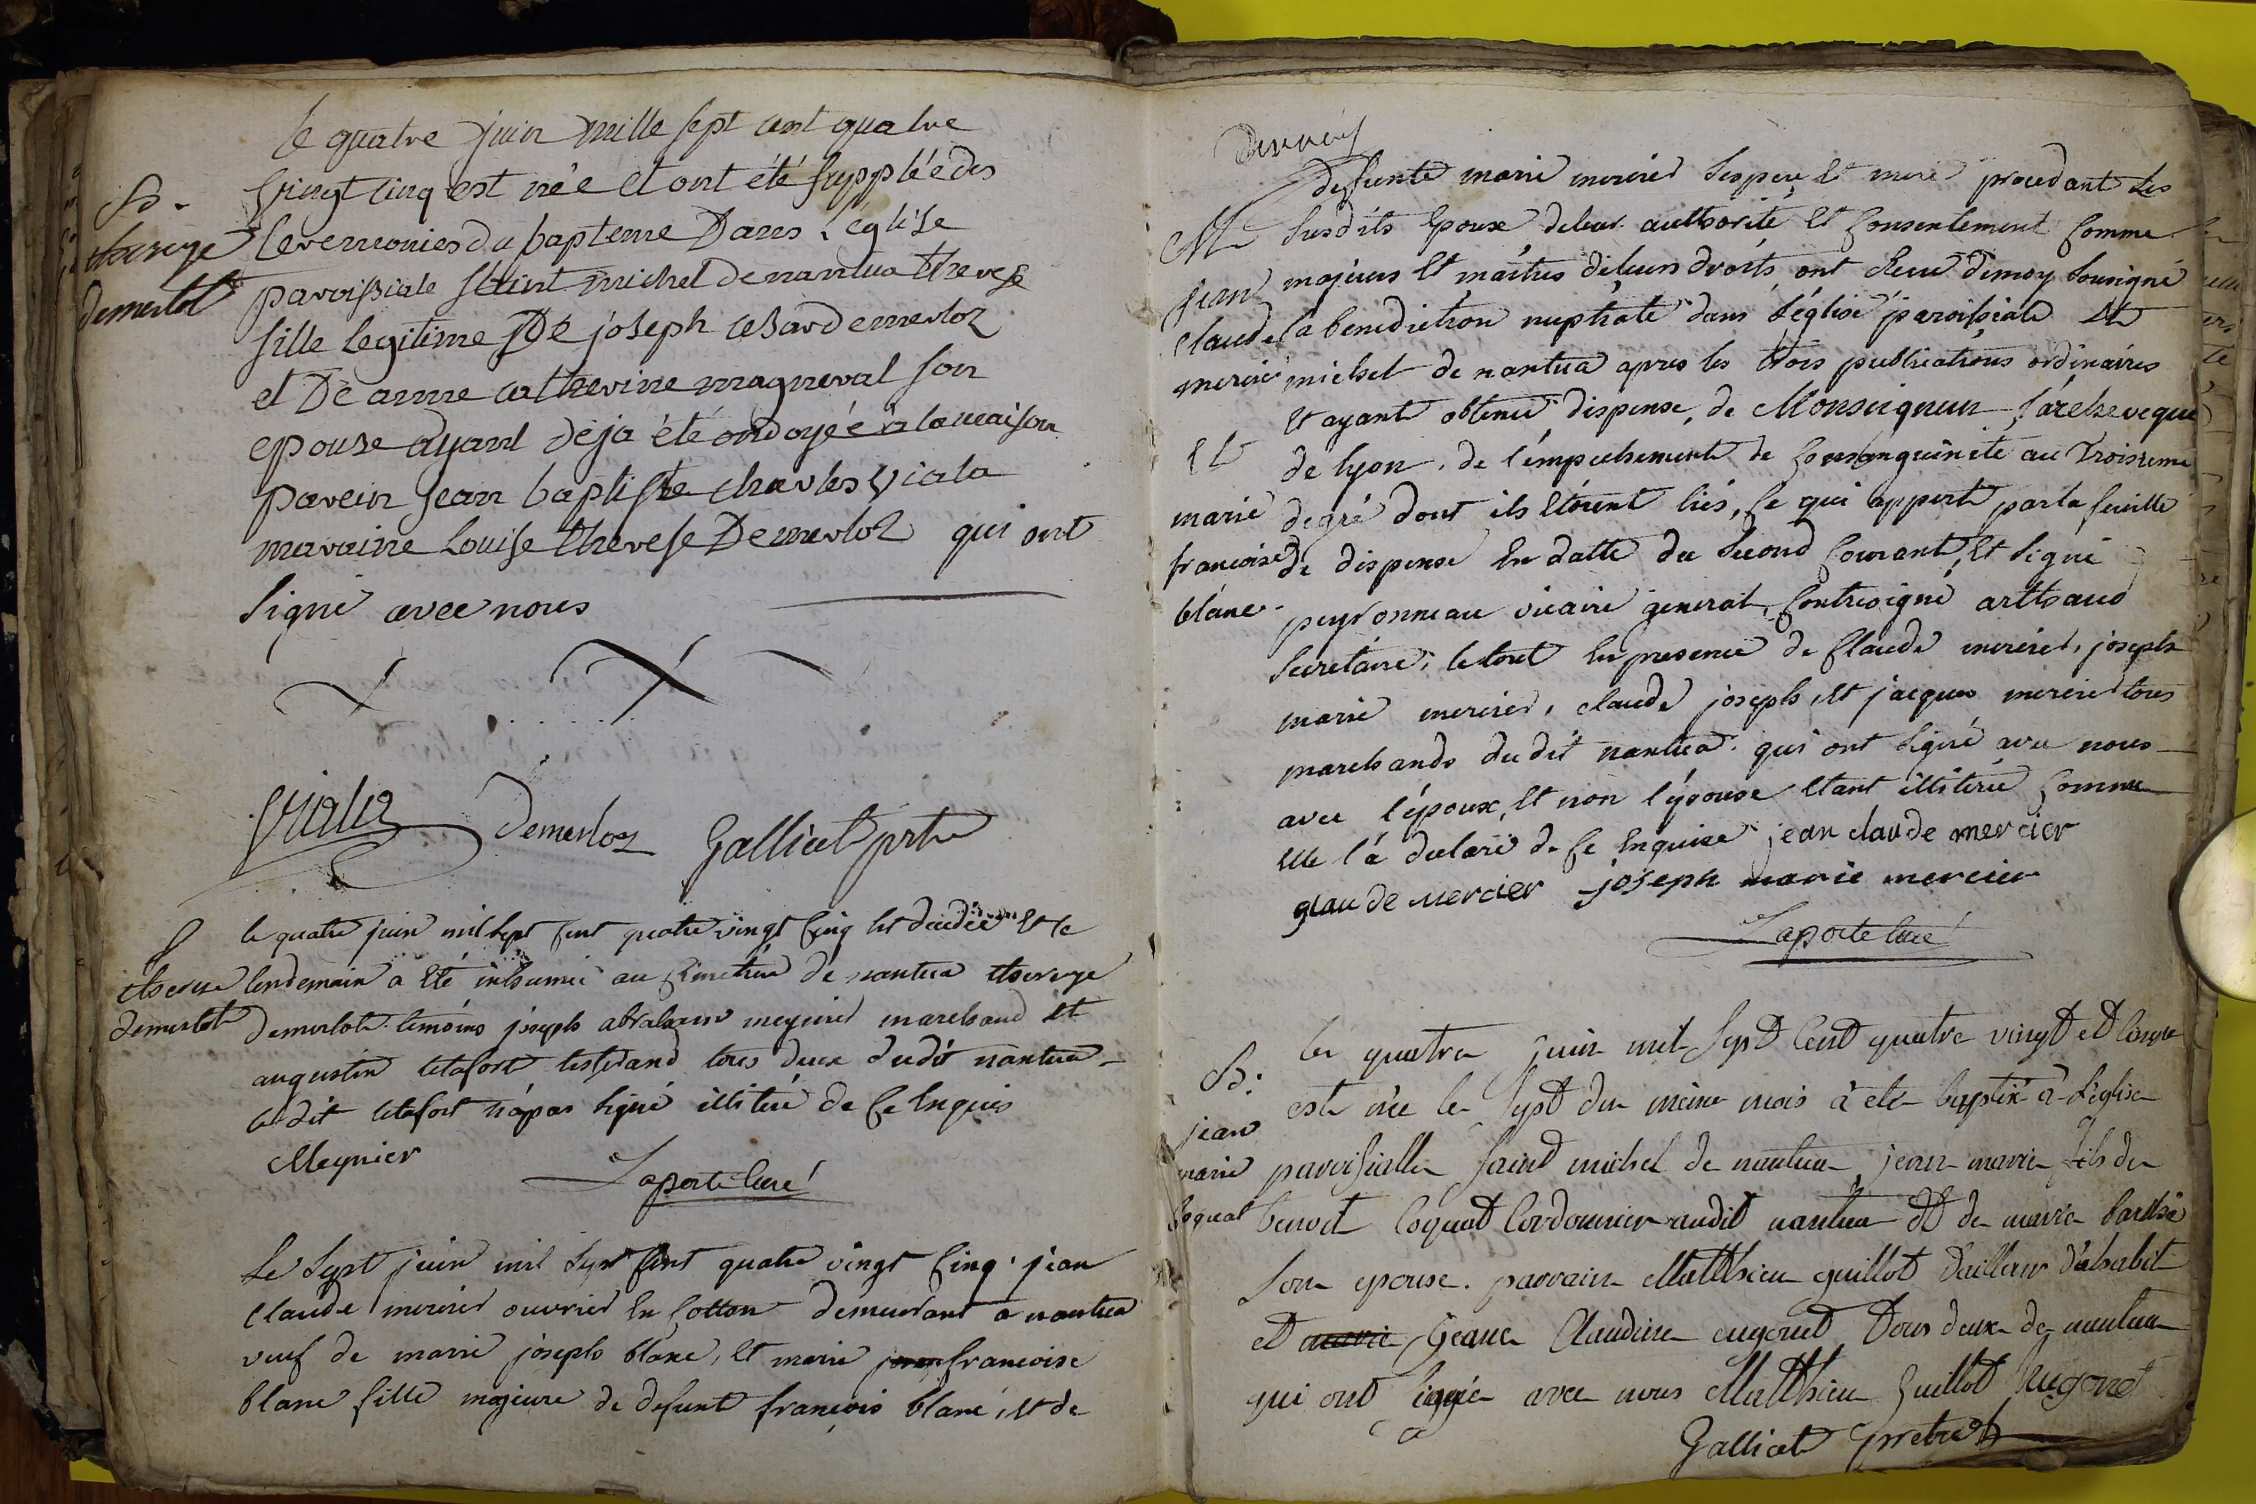 le quatre juin mille sept cent quatre
B.
vingt cinq est née et ont été supplée des
therese
ceremonies du bapteme Dans L'église
demerlot
paroissiale saint michel de nantua therese
fille legitime De joseph cesar demerloz
et De anne catherine magneval son
epouse ayant déja été ondoyée à la maison
parein jean baptiste charles viala
maraine Louise therese Demerloz qui ont
signé avec nous
Viala
Demerloz
Galliat prtre
le quatre juin mil sept cent quatre vingt cinq est décédée et le
therese
lendemain a été inhumée au cimetière de nantua therese
demerlot
demerlot. témoins joseph abraham meynier marchand et
augustin letafort tisserand tous deux dudit nantua
ledit letafort n'a pas signé illitéré de ce enquis
Meynier
Laporte curé
Le Sept juin mil sept cent quatre vingt cinq. jean
claude mercier ouvrier en cotton demeurant a nantua
veuf de marie joseph blanc, et marie francoise
blanc fille majeure de defunt françois blanc, et de
defunte marie mercier ses pere et mere procedant les
M
susdits epoux de leur authorité et consentement comme
jean
majeurs et maitres de leurs droits ont recu de moy sousigné
claude
la benediction nuptiale dans l'église paroissiale St
mercier
michel de nantua apres les trois publications ordinaires
et ayant obtenu dispense de Monseigneur l'archeveque
Et
de lyon, de l'empechement de consanguinité au troisieme
marie
degré dont ils étoient liés, ce qui appert par la feuille
francoise
de dispense en datte du second courant, et signé
blanc.
peyronneau vicaire general, contresigné arthaud
secretaire, le tout en presence de claude mercier, joseph
marie mercier, claude joseph, et jacques mercier tous
marchands dudit nantua. qui ont signé avec nous
avec l'époux, et non l'épouse etant illitérée comme
elle l'a declaré de ce enquise jean claude mercier
glaude mercier joseph marie mercier
Laporte curé
B.
le quatre juin mil sept cent quatre vingt et cinq
est née le sept du meme mois à eté baptizé à l'église
jean
marie
paroissialle saint michel de nantua jean marie fils de
coquat
benoit coquat cordonnier audit nantua et de marie
son epouse. parrain Matthieu guillot tailleur d'ahabit
et marie jeanne Claudine tous deux de nantua
qui ont signé avec nous Matthieu Guillot
Galliat pretre